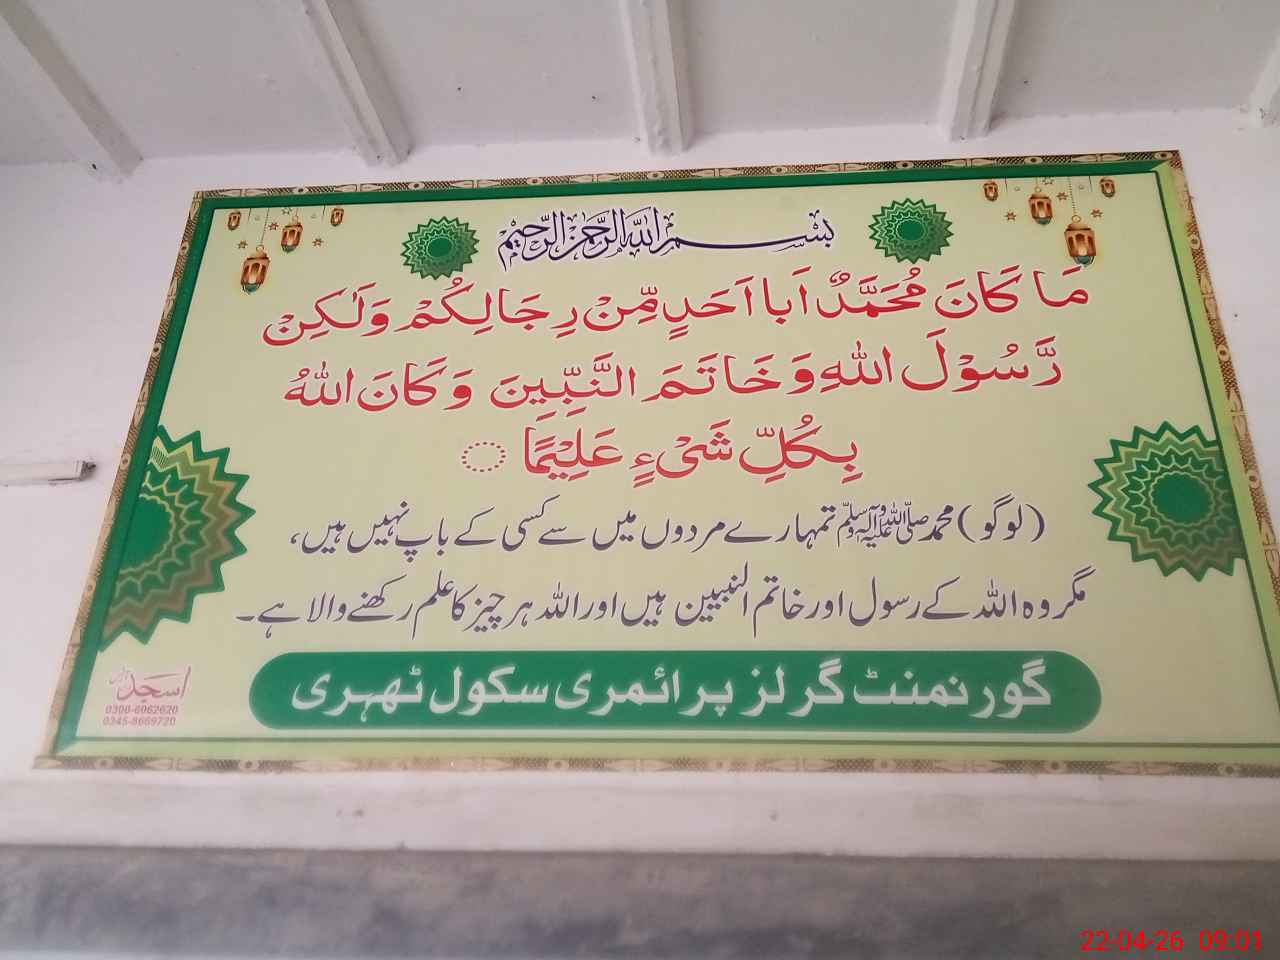 بِسْمِ اللهِ الرَّحْمٰنِ الرَّحِيْمِ
مَا كَانَ مُحَمَّدٌ اَبَا اَحَدٍ مِّنْ رِجَالِكُمْ وَلٰكِنْ
رَّسُوْلَ اللهِ وَخَاتَمَ النَّبِّيِنَ وَكَانَ اللهُ
بِكُلِّ شَىْءٍ عَلِيْمًا
(لوگو) محمد ﷺ تمہارے مردوں میں سے کسی کے باپ نہیں ہیں،
مگر وہ اللہ کے رسول اور خاتم النبیین ہیں اور اللہ ہر چیز کا علم رکھنے والا ہے۔
گورنمنٹ گرلز پرائمری سکول ٹھہری
اسجد
0300-6062620
0345-8669720
22-04-26 09:01